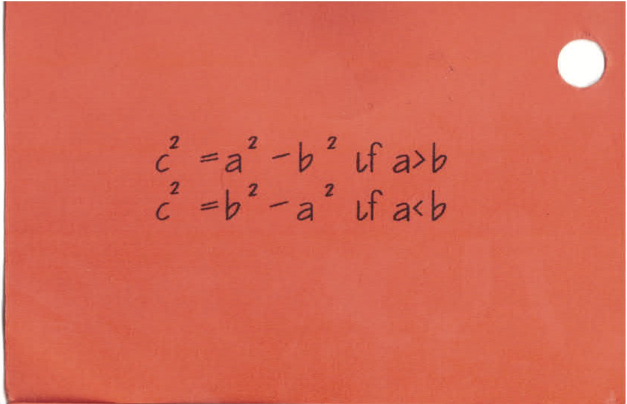 c² = a² - b² if a>b
c² = b² - a² if a<b